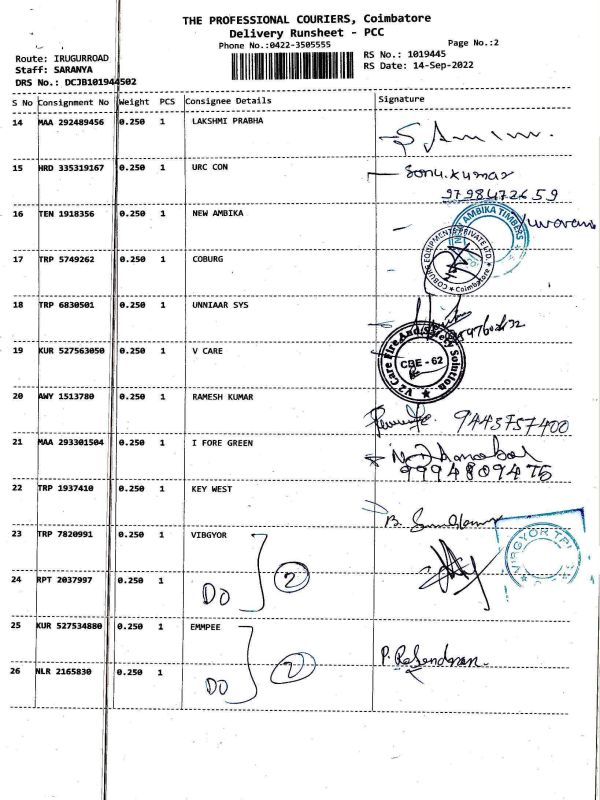 THE PROFESSIONAL COURIERS, Coimbatore
Delivery Runsheet - PCC
Phone No.:0422-3505555
Page No.:2
Route: IRUGURROAD
RS No.: 1019445
Staff: SARANYA
RS Date: 14-Sep-2022
DRS No.: DCJB101944502
S No Consignment No Weight PCS Consignee Details Signature
14 MAA 292489456 0.250 1 LAKSHMI PRABHA
15 HRD 335319167 0.250 1 URC CON
Sonu.Kumar
9798472659
16 TEN 1918356 0.250 1 NEW AMBIKA
AMBIKA TIMBERS
17 TRP 5749262 0.250 1 COBURG
COBURG EQUIPMENTS PRIVATE LTD.
Coimbatore
18 TRP 6830501 0.250 1 UNNIAAR SYS
19 KUR 527563050 0.250 1 V CARE
V2 Care Fire And Safety Solution
CBE - 62
20 AWY 1513780 0.250 1 RAMESH KUMAR
9443757400
21 MAA 293301504 0.250 1 I FORE GREEN
9994809475
22 TRP 1937410 0.250 1 KEY WEST
23 TRP 7820991 0.250 1 VIBGYOR
VIBGYOR
24 RPT 2037997 0.250 1
DO 2
25 KUR 527534880 0.250 1 EMMPEE
26 NLR 2165830 0.250 1
DO 2